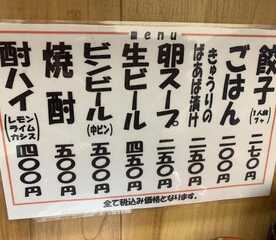 menu
餃子(1人前7ヶ) 二七〇円
ごはん 二〇〇円
きゅうりの
ばあば漬け 二五〇円
卵スープ 二五〇円
生ビール 四五〇円
ビンビール(中ビン) 五〇〇円
焼酎 五〇〇円
酎ハイ(レモン
ライム
カシス) 四〇〇円
全て税込み価格となります。